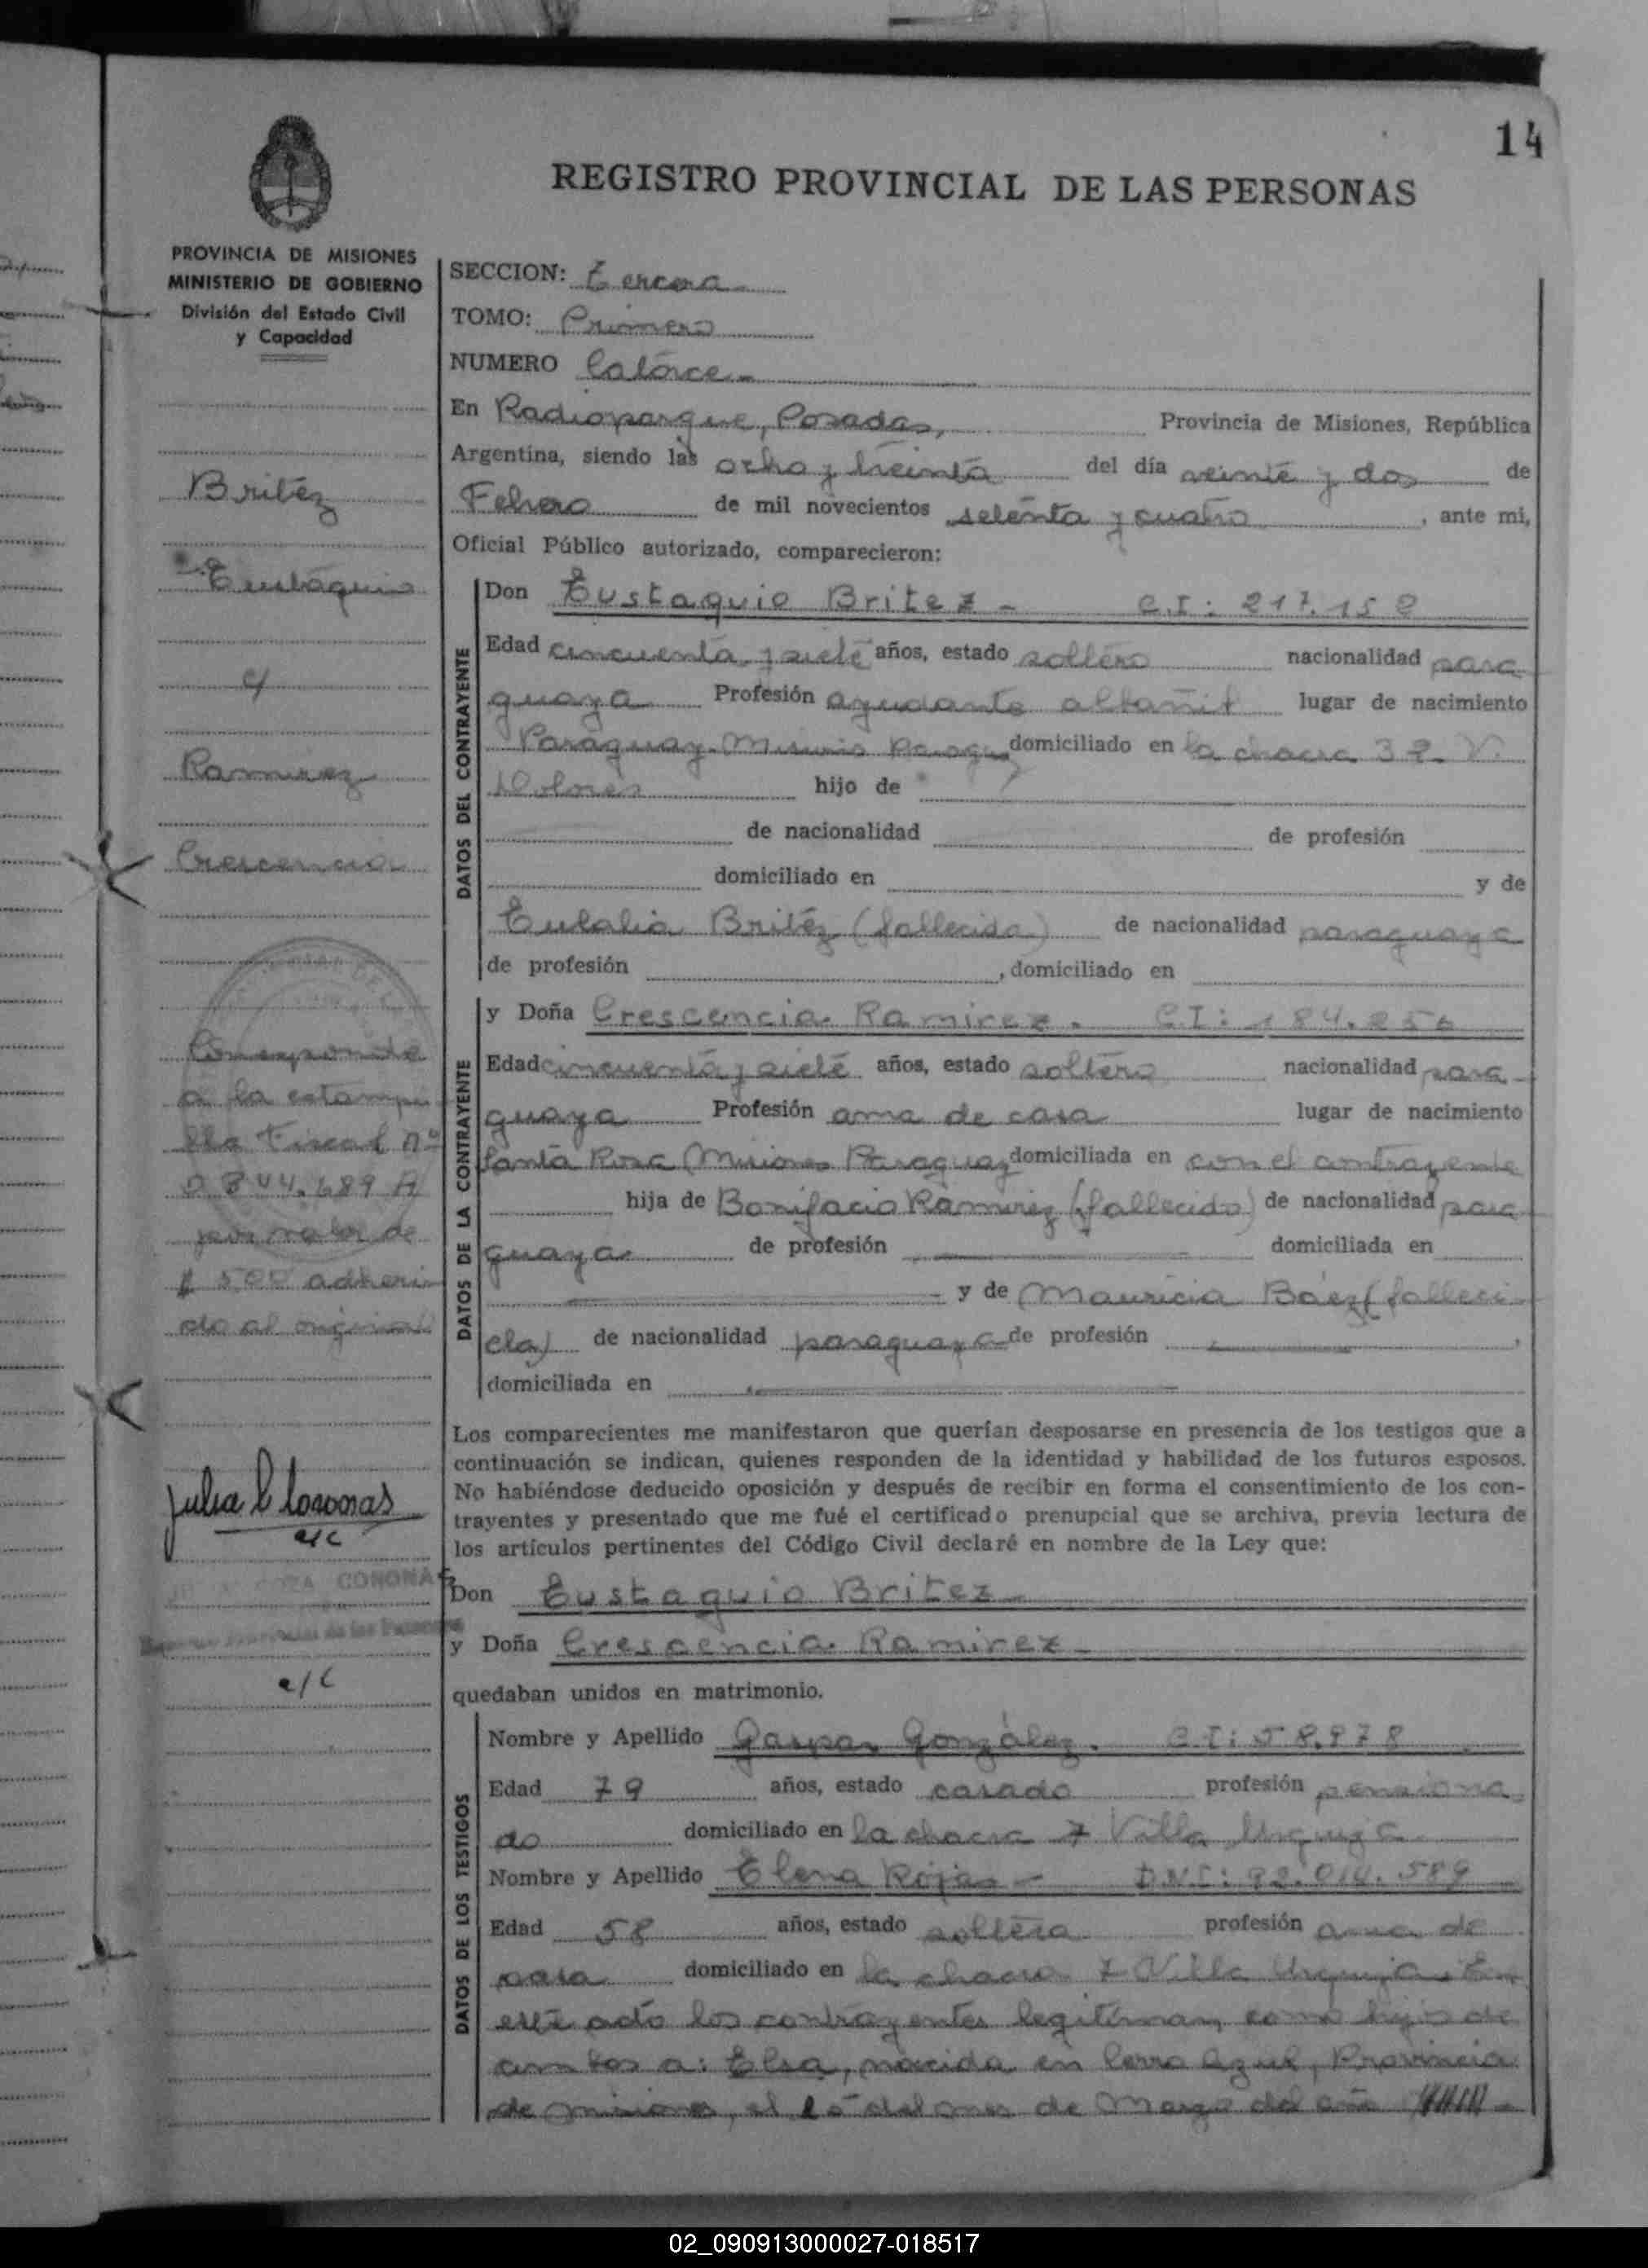 14
REGISTRO PROVINCIAL DE LAS PERSONAS
PROVINCIA DE MISIONES
MINISTERIO DE GOBIERNO
División del Estado Civil
y Capacidad
Britéz
Eustaquio
c/
Ramirez
Crescencia
Corresponde
a la estampi
lla Fiscal nº
0844.689 A
por valor de
$ 500 adheri
do al original
Julia C Coronas
a/c
COZA CORONA
Provincial de las Personas
a/c
SECCION: Tercera
TOMO: Primero
NUMERO Catorce
En Radioparque, Posadas, Provincia de Misiones, República
Argentina, siendo las ocho y treinta del día veinte y dos de
Febrero de mil novecientos setenta y cuatro, ante mi,
Oficial Público autorizado, comparecieron:
DATOS DEL CONTRAYENTE
Don Eustaquio Britez - C.I: 217.152
Edad cincuenta y siete años, estado soltero nacionalidad para
guaya Profesión ayudante albañil lugar de nacimiento
Paraguay. Misiones domiciliado en la chacra 32. V.
Dolores hijo de
de nacionalidad de profesión
domiciliado en y de
Eulalia Britéz (fallecida) de nacionalidad paraguaya
de profesión , domiciliado en
DATOS DE LA CONTRAYENTE
y Doña Crescencia Ramirez. C.I: 184.256
Edad cincuenta y siete años, estado soltero nacionalidad para-
guaya Profesión ama de casa lugar de nacimiento
Santa Rosa (Misiones Paraguay domiciliada en con el contrayente
hija de Bonifacio Ramirez (fallecido) de nacionalidad para
guaya de profesión domiciliada en
y de Mauricia Báez (falleci
da) de nacionalidad paraguaya de profesión ,
domiciliada en
Los comparecientes me manifestaron que querían desposarse en presencia de los testigos que a
continuación se indican, quienes responden de la identidad y habilidad de los futuros esposos.
No habiéndose deducido oposición y después de recibir en forma el consentimiento de los con-
trayentes y presentado que me fué el certificado prenupcial que se archiva, previa lectura de
los artículos pertinentes del Código Civil declaré en nombre de la Ley que:
Don Eustaquio Britez
y Doña Crescencia Ramirez
quedaban unidos en matrimonio.
DATOS DE LOS TESTIGOS
Nombre y Apellido Gaspar González. C.I: 58.978
Edad 79 años, estado casado profesión pensiona
do domiciliado en la chacra 7 Villa Urquiza
Nombre y Apellido Elena Rojas - D.N.I: 92.014.589
Edad 58 años, estado soltera profesión ama de
casa domiciliado en la chacra 7 Villa Urquiza. En
este acto los contrayentes legitiman como hijo de
ambos a: Elsa, nacida en Cerro Azul, Provincia
de Misiones, el del mes de Marzo del año
02_090913000027-018517